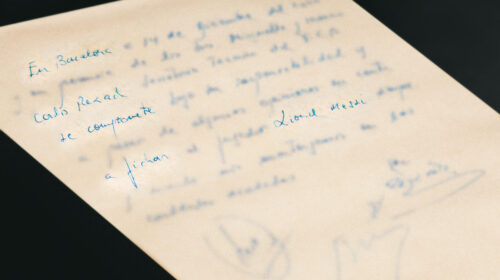 En Barcelona a 14 de diciembre del
y en presencia de los
Carles Rexach Secretario Técnico del F.C.B
se compromete bajo su responsabilidad y
a pesar de algunas opiniones en contra
a fichar al jugador Lionel Messi siempre
y cuando nos mantengamos en las
cantidades acordadas